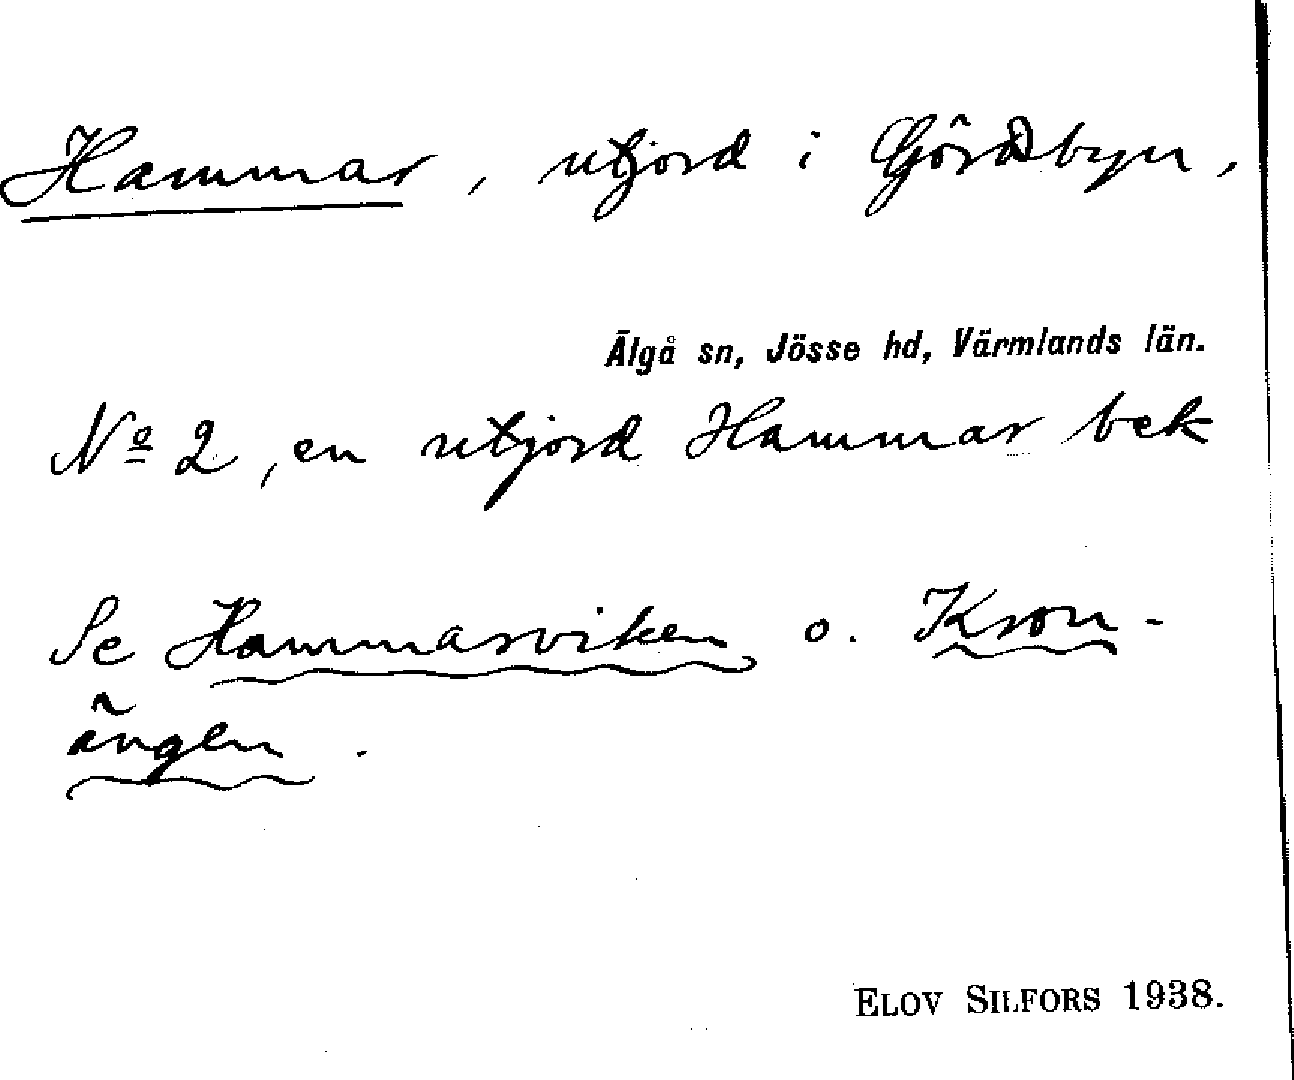 Hammar, utjord i Gördbyn,
Älgå sn, Jösse hd, Värmlands län.
Nº 2, en utjord Hammar bek
Se Hammarviken o. Kron-
ängen.
ELOV SILFORS 1938.